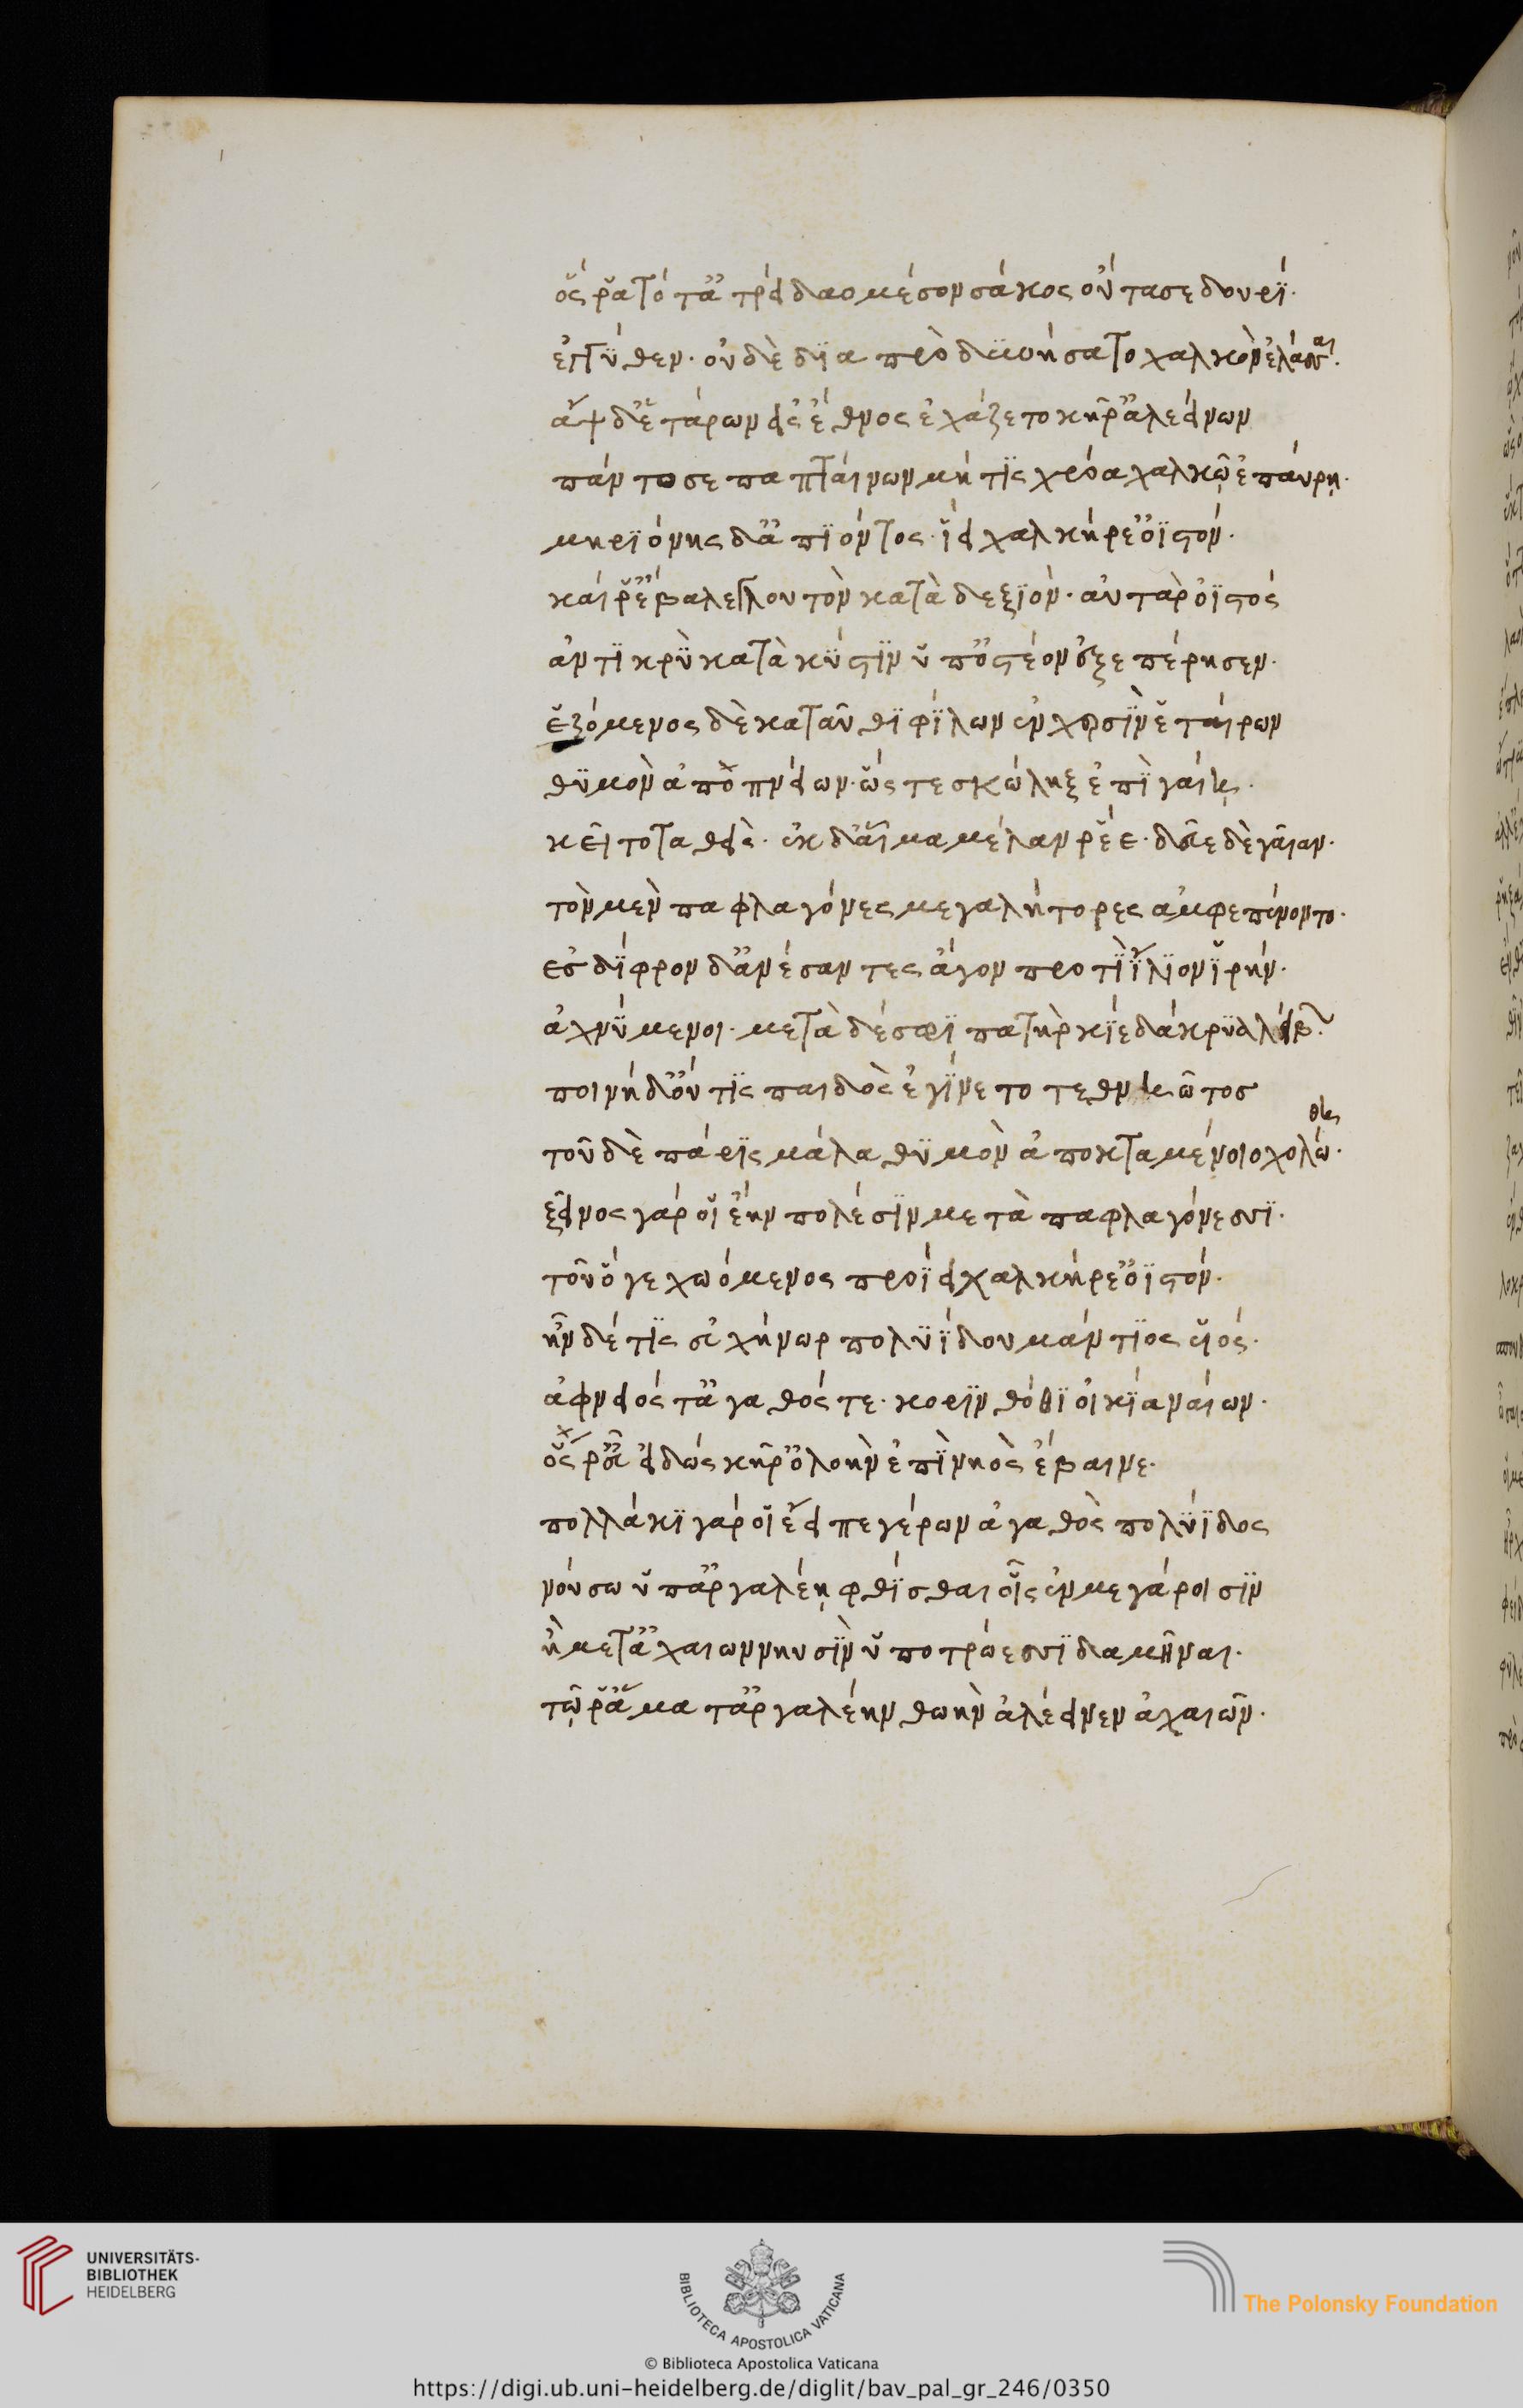 ὅς ῥα τότ' ἀτρείδαο μέσον σάκος οὔτασε δουρί·
ἐγγύθεν· οὐδὲ διαπρὸ δυνήσατο χαλκὸν ἐλάσσαι·
ἂψ δ' ἑτάρων εἰς ἔθνος ἐχάζετο κῆρ' ἀλεείνων
πάντοσε παπταίνων μή τις χρόα χαλκῷ ἐπαύρῃ·
μηριόνης δ' ἀπιόντος ἵει χαλκήρε' ὀϊστόν·
καί ῥ' ἔβαλε γλουτὸν κατὰ δεξιόν· αὐτὰρ ὀϊστός
ἀντικρὺ κατὰ κύστιν ὑπ' ὀστέον ἐξεπέρησεν·
ἑζόμενος δὲ κατ' αὖθι φίλων ἐν χερσὶν ἑταίρων
θυμὸν ἀποπνείων· ὥς τε σκώληξ ἐπὶ γαίης·
κεῖτο ταθείς· ἐκ δ' αἷμα μέλαν ῥέε· δεῦε δὲ γαῖαν·
τὸν μὲν παφλαγόνες μεγαλήτορες ἀμφεπένοντο·
ἐς δίφρον δ' ἀνέσαντες ἄγον προτὶ ἴλιον ἱρήν·
ἀχνύμενοι· μετὰ δέ σφι πατὴρ κίε δάκρυα λείβων·
ποινὴ δ' οὔτις παιδὸς ἐγίνετο τεθνειῶτος
τοῦ δὲ πάρις μάλα θυμὸν ἀποκταμένοιο χολώθης·
ξεῖνος γάρ οἱ ἔην πολέσιν μετὰ παφλαγόνεσσι·
τοῦ ὅγε χωόμενος προΐει χαλκήρε' ὀϊστόν·
ἦν δέ τις εὐχήνωρ πολυΐδου μάντιος υἱός·
ἀφνειός τ' ἀγαθός τε· κορινθόθι οἰκία ναίων·
ὅς ῥ' εὖ εἰδὼς κῆρ' ὀλοὴν ἐπὶ νηὸς ἔβαινε·
πολλάκι γάρ οἱ ἔειπε γέρων ἀγαθὸς πολύϊδος
νούσῳ ὑπ' ἀργαλέῃ φθίσθαι οἷς ἐν μεγάροισιν
ἢ μετ' ἀχαιῶν νηυσὶν ὑπὸ τρώεσσι δαμῆναι·
τῷ ῥ' ἅμα τ' ἀργαλέην θωὴν ἀλέεινεν ἀχαιῶν·
UNIVERSITÄTS-
BIBLIOTHEK
HEIDELBERG
BIBLIOTECA APOSTOLICA VATICANA
The Polonsky Foundation
© Biblioteca Apostolica Vaticana
https://digi.ub.uni-heidelberg.de/diglit/bav_pal_gr_246/0350